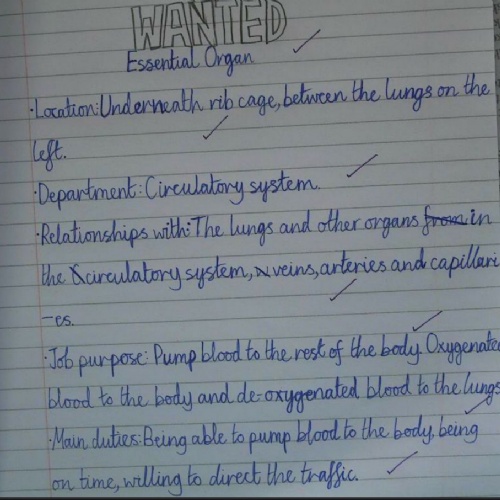 WANTED
Essential Organ
·Location: Underneath rib cage, between the lungs on the
left.
·Department: Circulatory system.
·Relationships with: The lungs and other organs from in
the circulatory system, veins, arteries and capillari
-es.
·Job purpose: Pump blood to the rest of the body. Oxygenated
blood to the body and de-oxygenated blood to the lungs
·Main duties: Being able to pump blood to the body, being
on time, willing to direct the traffic.